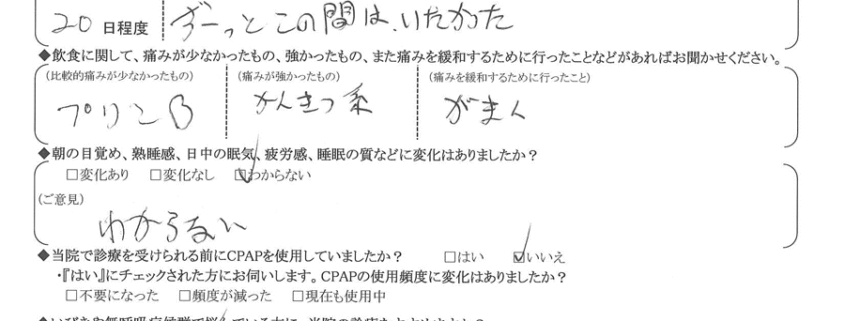 20 日程度 ずーっとこの間は、いたかった
◆飲食に関して、痛みが少なかったもの、強かったもの、また痛みを緩和するために行ったことなどがあればお聞かせください。
(比較的痛みが少なかったもの) (痛みが強かったもの) (痛みを緩和するために行ったこと)
プリン かんきつ系 がまん
◆朝の目覚め、熟睡感、日中の眠気、疲労感、睡眠の質などに変化はありましたか？
□変化あり □変化なし ☑わからない
(ご意見)
わからない
◆当院で診療を受けられる前にCPAPを使用していましたか？ □はい ☑いいえ
・『はい』にチェックされた方にお伺いします。CPAPの使用頻度に変化はありましたか？
□不要になった □頻度が減った □現在も使用中